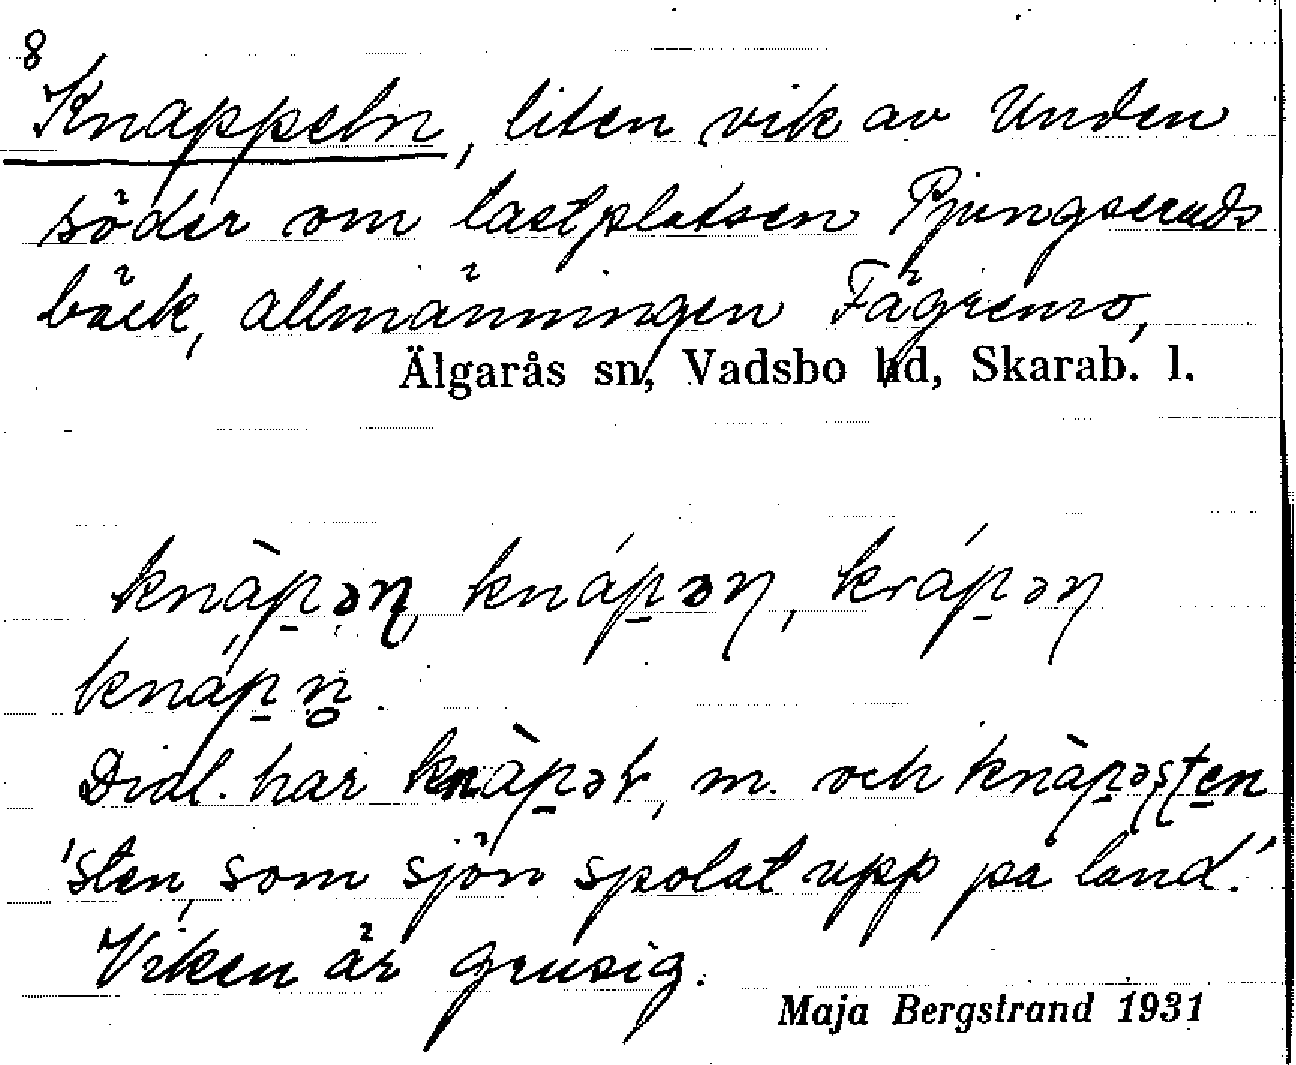 8
Knappeln, liten vik av Unden
söder om lastplatsen Pjungseruds
bäck, allmänningen Fägremo,
Älgarås sn, Vadsbo hd, Skarab. l.
knàp̠əɳ knáp̠əɳ, kráp̠əɳ
knáp̠n̥.
Dial. har knàp̠əɽ, m. och knàp̠əʂʈe̠n
'sten, som sjön spolat upp på land.'
Viken är grusig.
Maja Bergstrand 1931